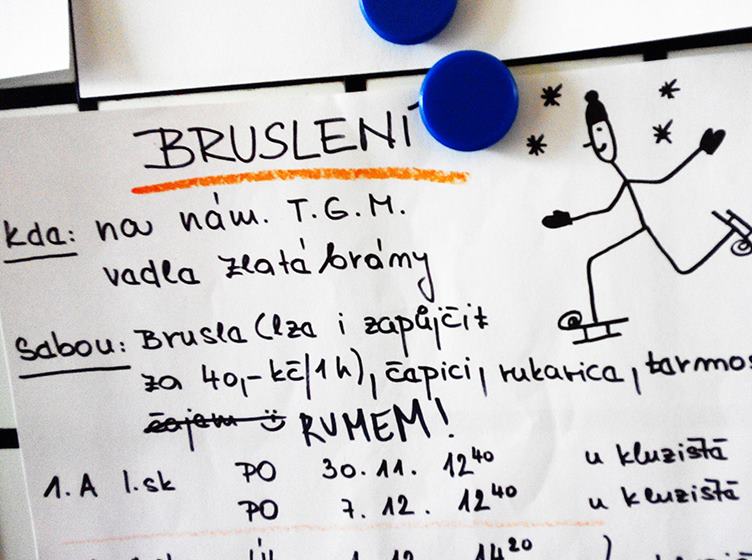 BRUSLENÍ
kda: na nám. T.G.M.
vadla zlatá brány
Sabou: Brusla (lza i zapůjčit
za 40,-kč/1h), čapici, rukarica, tarmos
čajem RUMEM!
1.A l.sk PO 30.11. 12⁴⁰ u kluzistā
PO 7.12. 12⁴⁰ u kluzistā
14²⁰